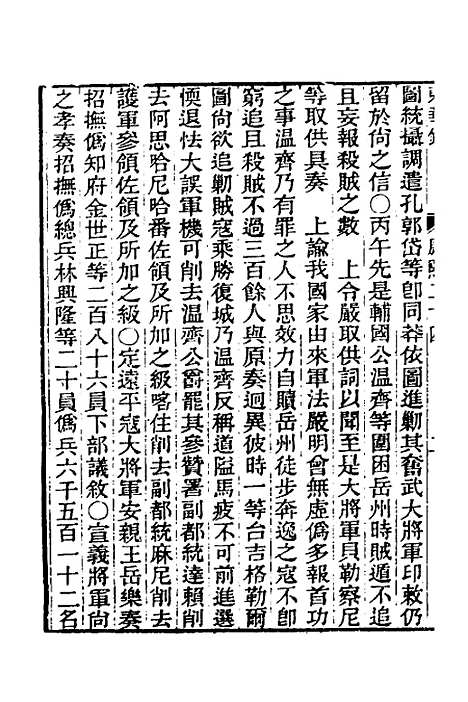 圖統攝調遣孔郭岱等卽同莽依圖進勦其奮武大將軍印敕仍
留於尚之信○丙午先是輔國公溫齊等圍困岳州時賊遁不追
且妄報殺賊之數　上令嚴取供詞以聞至是大將軍貝勒察尼
等取供具奏　上諭我國家由來軍法嚴明曾無虛僞多報首功
之事溫齊乃有罪之人不思效力自贖岳州徒步奔逸之寇不卽
窮追且殺賊不過三百餘人與原奏迥異彼時一等台吉格勒爾
圖尚欲追勦賊寇乘勝復城乃溫齊反稱道隘馬疲不可前進選
愞退怯大誤軍機可削去溫齊公爵罷其參贊署副都統達賴削
去阿思哈尼哈番佐領及所加之級喀住削去副都統麻尼削去
護軍參領佐領及所加之級○定遠平寇大將軍安親王岳樂奏
招撫僞知府金世正等二百八十六員下部議敘○宣義將軍尚
之孝奏招撫僞總兵林興隆等二十員僞兵六千五百一十二名